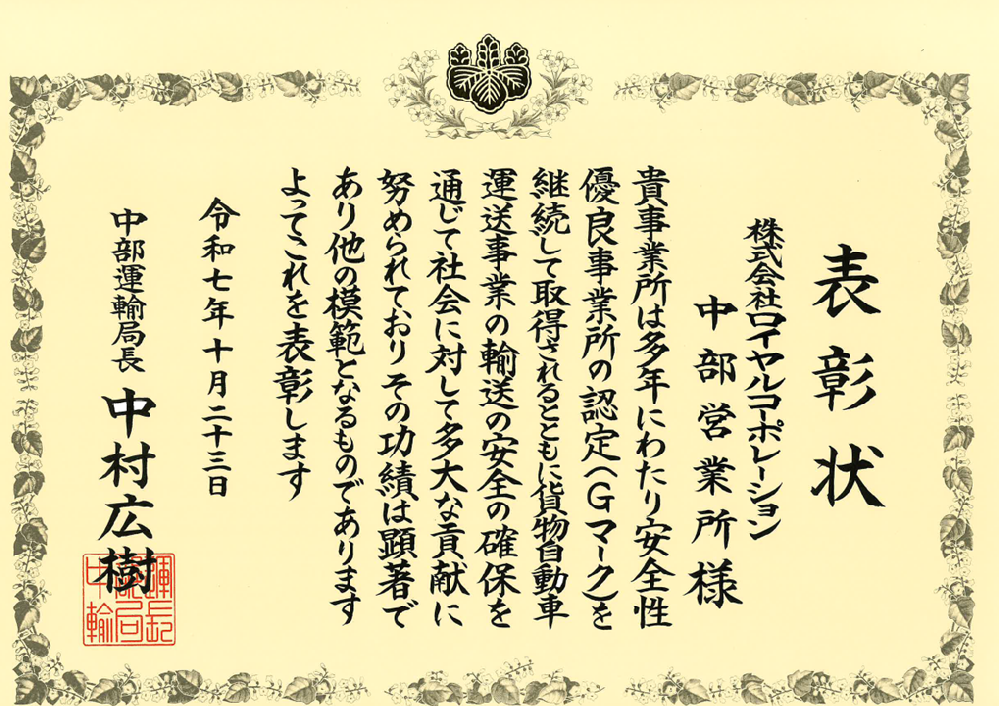 表彰状
株式会社ロイヤルコーポレーション
中部営業所様
貴事業所は多年にわたり安全性
優良事業所の認定(Gマーク)を
継続して取得されるとともに貨物自動車
運送事業の輸送の安全の確保を
通じて社会に対して多大な貢献に
努められておりその功績は顕著で
あり他の模範となるものであります
よってこれを表彰します
令和七年十月二十三日
中部運輸局長 中村広樹